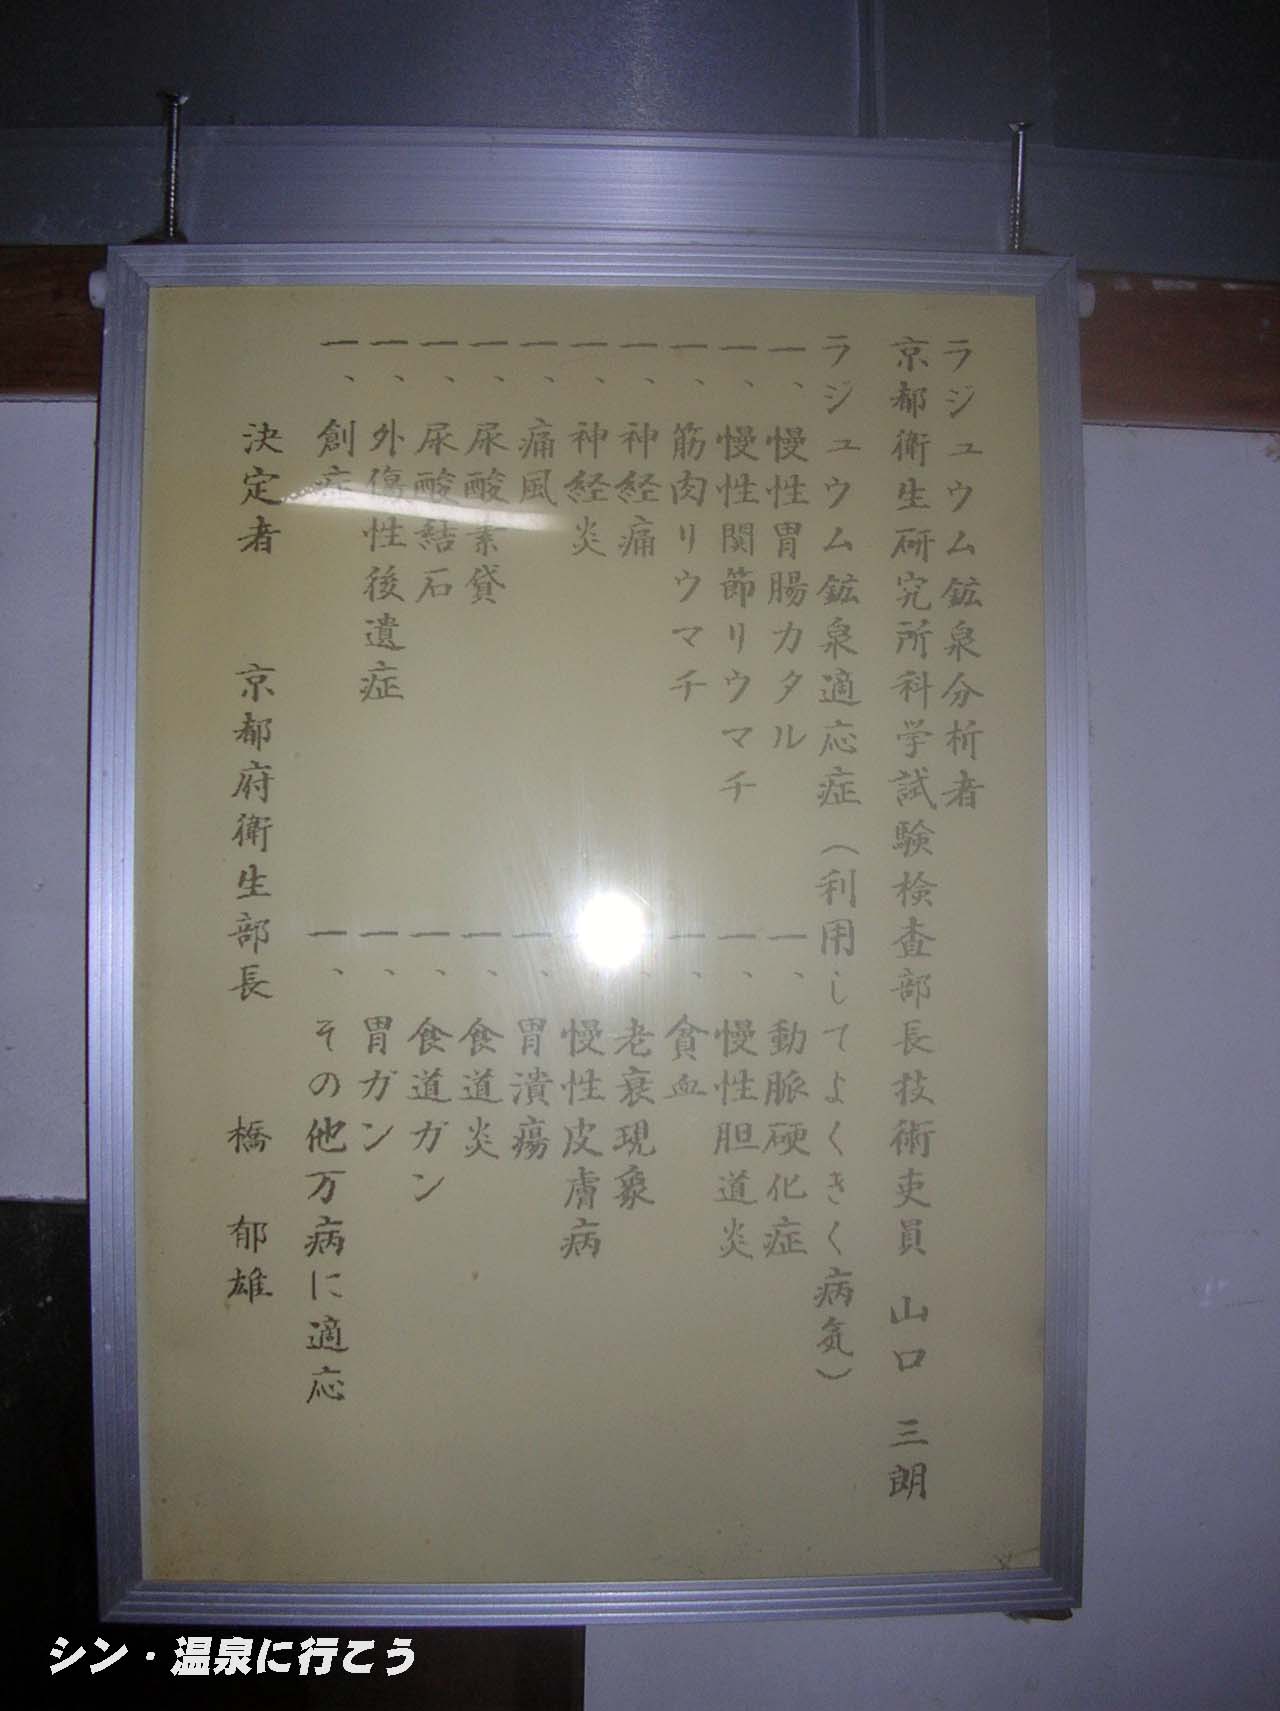 ラジュウム鉱泉分析者
京都衛生研究所科学試験検査部長技術吏員 山口 三朗
ラジュウム鉱泉適応症(利用してよくきく病気)
一、慢性胃腸カタル
一、慢性関節リウマチ
一、筋肉リウマチ
一、神経痛
一、神経炎
一、痛風
一、尿酸素貸
一、尿酸結石
一、外傷性後遺症
一、創症
一、動脈硬化症
一、慢性胆道炎
一、貧血
老衰現象
慢性皮膚病
一、胃潰瘍
一、食道炎
一、食道ガン
一、胃ガン
一、その他万病に適応
決定者 京都府衛生部長 橋 郁雄
シン・温泉に行こう